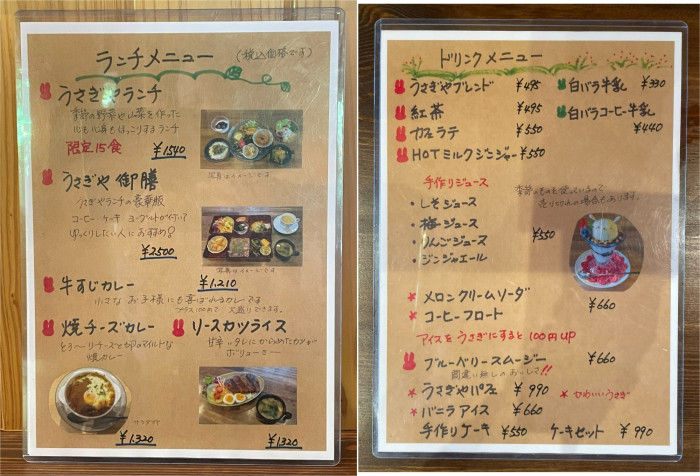 ランチメニュー
(税込価格です)
うさぎやランチ
季節の野菜や山菜を使った
心も心身もほっこりするランチ
限定15食
¥1540
写真はイメージです
うさぎや御膳
うさぎやランチの豪華版
コーヒー ケーキ ヨーグルトがついて
ゆっくりしたい人におすめ?
¥2500
写真はイメージです
牛すじカレー
¥1,210
小さな お子様にも喜ばれるカレーです
プラス100円で 大盛りできます。
焼チーズカレー
とろ〜りチーズと卵のマイルドな
焼カレー
サラダ付
¥1,320
リースカツライス
甘辛いタレにからめたカツが
ボリューミー
¥1320
ドリンクメニュー
うさぎやブレンド ¥495
紅茶 ¥495
カフェラテ ¥550
HOTミルクジンジャー ¥550
白バラ牛乳 ¥330
白バラコーヒー牛乳
¥440
手作りジュース
季節のものを使っているので
売り切れの場合もあります。
・しそジュース
・梅ジュース
・りんごジュース
・ジンジャエール
¥550
メロンクリームソーダ
コーヒーフロート
¥660
アイスをうさぎにすると100円UP
ブルーベリースムージー ¥660
間違い無しのおいしさ!!
うさぎやパフェ ¥990
かわいいうさぎ
バニラアイス ¥660
手作りケーキ ¥550 ケーキセット ¥990